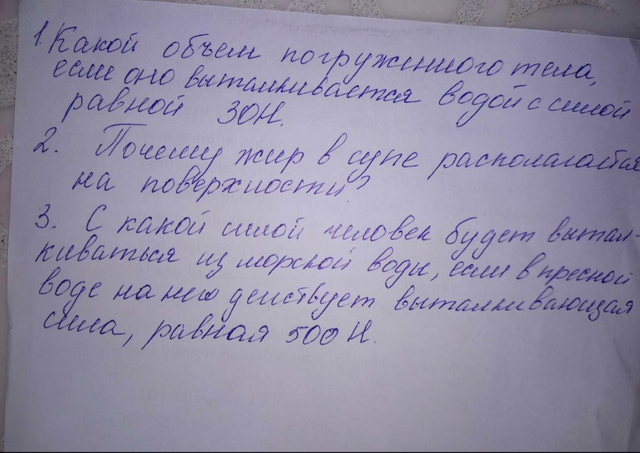 1. Какой объем погружённого тела,
если оно выталкивается водой с силой
равной 30Н.
2. Почему жир в супе располагается
на поверхности?
3. С какой силой человек будет вытал-
киваться из морской воды, если в пресной
воде на него действует выталкивающая
сила, равная 500 Н.